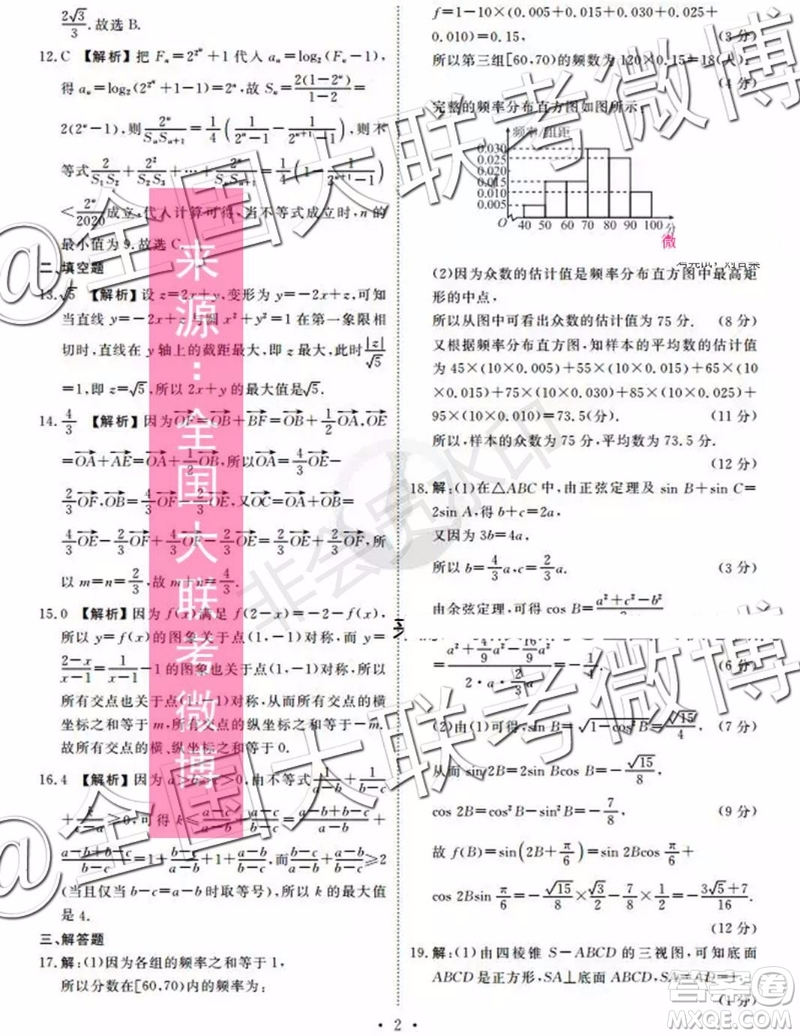 2√3/3.故选 B.
12.C 【解析】把 Fₙ=2^(2ⁿ)+1 代入 aₙ=log₂(Fₙ−1),
得 aₙ=log₂(2^(2ⁿ)+1−1)=2ⁿ,故 Sₙ=2(1−2ⁿ)/(1−2)=
2(2ⁿ−1),则 2ⁿ/(SₙSₙ₊₁)=1/4(1/(2ⁿ−1)−1/(2ⁿ⁺¹−1)),则不
等式 2/(S₁S₂)+2²/(S₂S₃)+⋯+2ⁿ/(SₙSₙ₊₁)
<2ⁿ/2020 成立,代入计算可得,当不等式成立时,n 的
最小值为 9.故选 C.
二、填空题
13.√5 【解析】设 z=2x+y,变形为 y=−2x+z,可知
当直线 y=−2x+z 与圆 x²+y²=1 在第一象限相
切时,直线在 y 轴上的截距最大,即 z 最大,此时 |z|/√5
=1,即 z=√5,所以 2x+y 的最大值是√5.
14.4/3 【解析】因为OF=OB+BF=OB+1/2OA,OE
=OA+AE=OA+1/2OB,所以OB=−2/3OE+4/3OF,OA=4/3OE−
2/3OF,又OC=OA+OB=
4/3OE−2/3OF+4/3OF−2/3OE=2/3OE+2/3OF,所
以 m=n=2/3,故 m+n=4/3.
15.0 【解析】因为 f(x)满足 f(2−x)=−2−f(x),
所以 y=f(x)的图象关于点(1,−1)对称,而 y=
(2−x)/(x−1)=1/(x−1)−1 的图象也关于点(1,−1)对称,所以
所有交点也关于点(1,−1)对称,从而所有交点的横
坐标之和等于 m,所有交点的纵坐标之和等于−m,
故所有交点的横、纵坐标之和等于 0.
16.4 【解析】因为 a>b>c>0,由不等式 1/(a−b)+1/(b−c)
+k/(c−a)≥0,可得 k≤(a−c)/(a−b)+(a−c)/(b−c)=(a−b+b−c)/(a−b)+(a−b+b−c)/(b−c)
=1+(b−c)/(a−b)+1+(a−b)/(b−c),而(b−c)/(a−b)+(a−b)/(b−c)≥2
(当且仅当 b−c=a−b 时取等号),所以 k 的最大值
是 4.
三、解答题
17.解:(1)因为各组的频率之和等于 1,
所以分数在[60,70)内的频率为:
f=1−10×(0.005+0.015+0.030+0.025+
0.010)=0.15, (3 分)
所以第三组[60,70)的频数为 120×0.15=18(人).
(4 分)
完整的频率分布直方图如图所示:
频率/组距
0.030
0.025
0.015
0.010
0.005
O 40 50 60 70 80 90 100 分
微
(2)因为众数的估计值是频率分布直方图中最高矩
形的中点,
所以从图中可看出众数的估计值为 75 分. (8 分)
又根据频率分布直方图,知样本的平均数的估计值
为 45×(10×0.005)+55×(10×0.015)+65×(10
×0.015)+75×(10×0.030)+85×(10×0.025)+
95×(10×0.010)=73.5(分). (11 分)
所以,样本的众数为 75 分,平均数为 73.5 分.
(12 分)
18.解:(1)在△ABC 中,由正弦定理及 sin B+sin C=
2sin A,得 b+c=2a,
又因为 3b=4a,
所以 b=4/3a,c=2/3a. (3 分)
由余弦定理,可得 cos B=(a²+c²−b²)/
=(a²+4/9a²−16/9a²)/(2·a·2/3a)=−1/4. (6 分)
(2)由(1)可得,sin B=√(1−cos²B)=√15/4, (7 分)
从而 sin 2B=2sin Bcos B=−√15/8,
cos 2B=cos²B−sin²B=−7/8, (9 分)
故 f(B)=sin(2B+π/6)=sin 2Bcos π/6+
cos 2Bsin π/6=−√15/8×√3/2−7/8×1/2=−(3√5+7)/16.
(12 分)
19.解:(1)由四棱锥 S−ABCD 的三视图,可知底面
ABCD 是正方形,SA⊥底面 ABCD,SA=AD=1,
(1 分)
· 2 ·
@全国大联考微博
来源:全国大联考微博
@全国大联考微博
非会员水印
答案圈
MXQE.COM